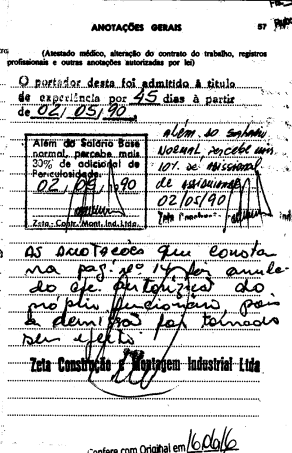 ANOTAÇÕES GERAIS 57
(Atestado médico, alteração do contrato do trabalho, registros
profissionais e outras anotações autorizadas por lei)
O portador desta foi admitido à título
de experiência por 45 dias à partir
de 02/05/90
Além do Salário Base
normal, percebe mais
30% de adicional de
Periculosidade.
02/05/90
Zeta-Constr. Mont. Ind. Ltda.
Além do Salário
Normal percebe um
10% de adicional
de
02/05/90
As anotações que consta
na pag. nº 14 foi anula-
do
funcionário pois
a demissão foi tornado
sem efeito
Zeta Construção e Montagem Industrial Ltda
Confere com Original em 16/06/16